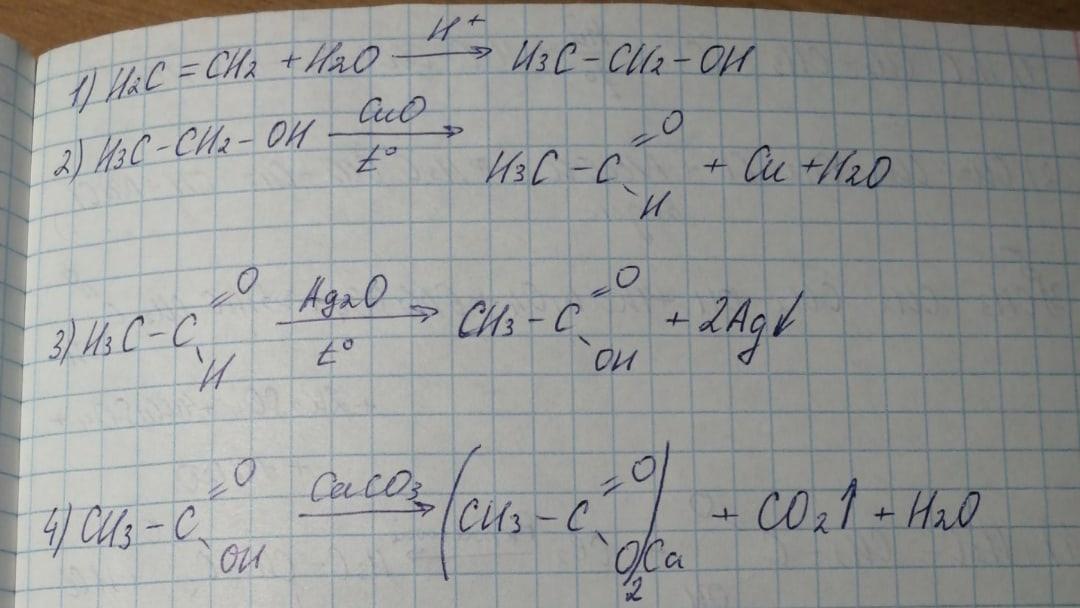 1) H2C = CH2 + H2O —H+→ H3C – CH2 – OH
2) H3C – CH2 – OH —CuO, t°→ H3C – C(=O)–H + Cu + H2O
3) H3C – C(=O)–H —Ag2O, t°→ CH3 – C(=O)–OH + 2Ag↓
4) CH3 – C(=O)–OH —CaCO3→ (CH3 – C(=O)–O)2Ca + CO2↑ + H2O